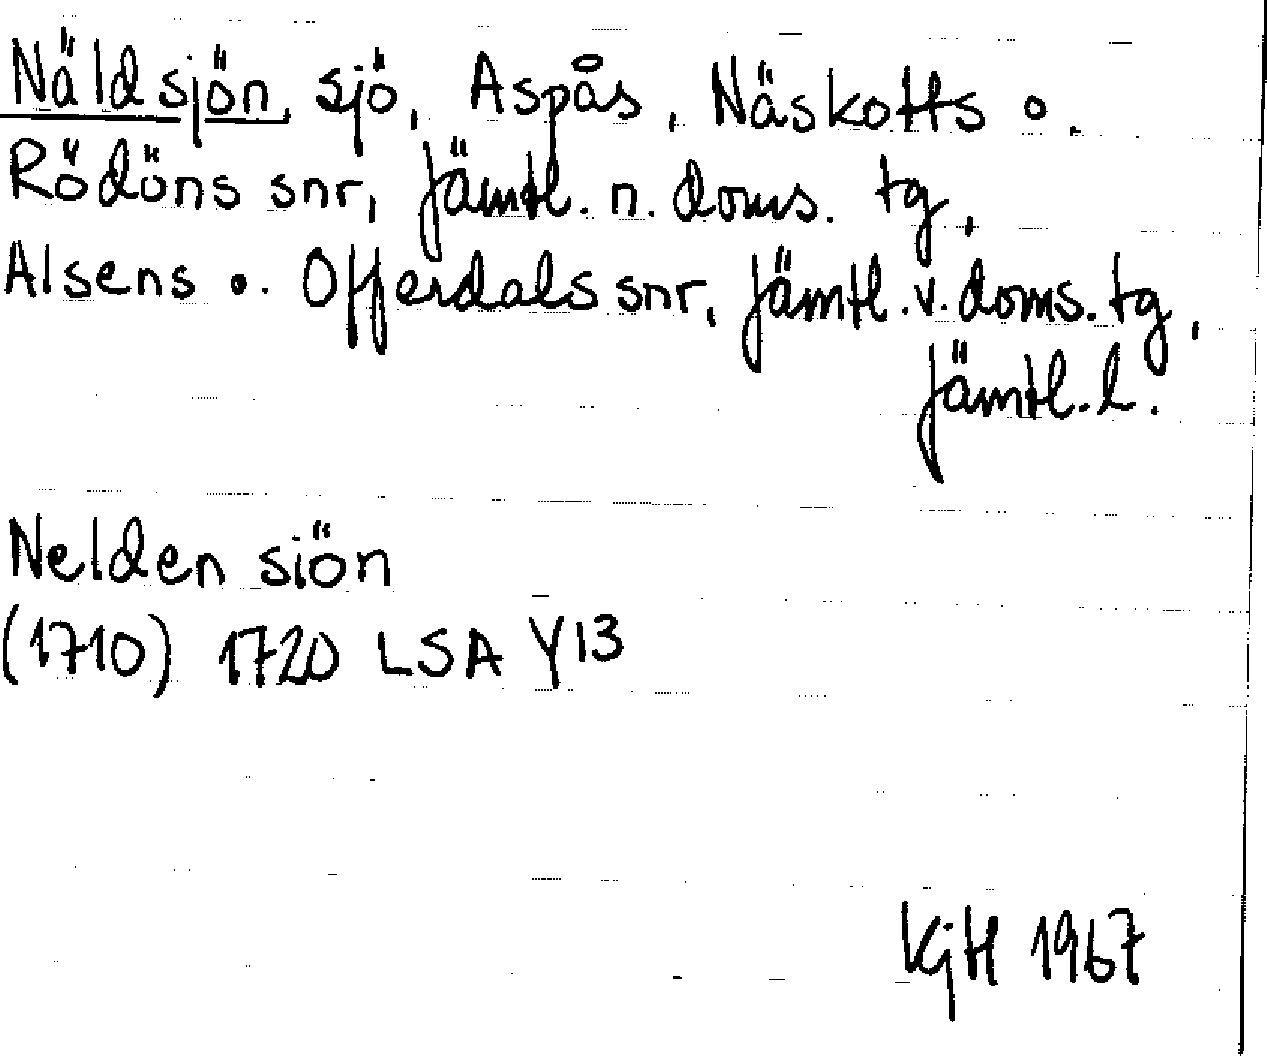 Näldsjön, sjö, Aspås, Näskotts o.
Rödöns snr, Jämtl. n. doms. tg,
Alsens o. Offerdals snr, Jämtl. v. doms. tg,
Jämtl. l.
Nelden siön
(1710) 1720 LSA Y13
KjH 1967